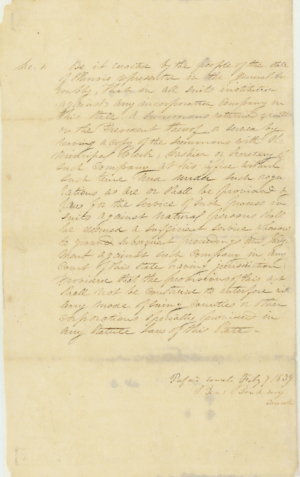 Sec. 1. Be it enacted by the people of the state
of Illinois represented in the general As-
sembly, That in all suits instituted
against any incorporated company in
this State, A Summons returned
on the President thereof or served by
leaving a copy of the summons with the
principal Clerk, Cashier or Secretary of
such Company, at his office
such time and under such regu-
lations as are or shall be provided by
law for the service of such process in
suits against natural persons shall
be deemed a sufficient service
to ground subsequent proceedings and Judg-
ment against such Company in any
Court of this State having jurisdiction
Provided that the provisions of this act
shall not be construed to interfere with
any mode of suing Counties or other
Corporations specially provided in
any Statute Law of this State.
Feby 7, 1839